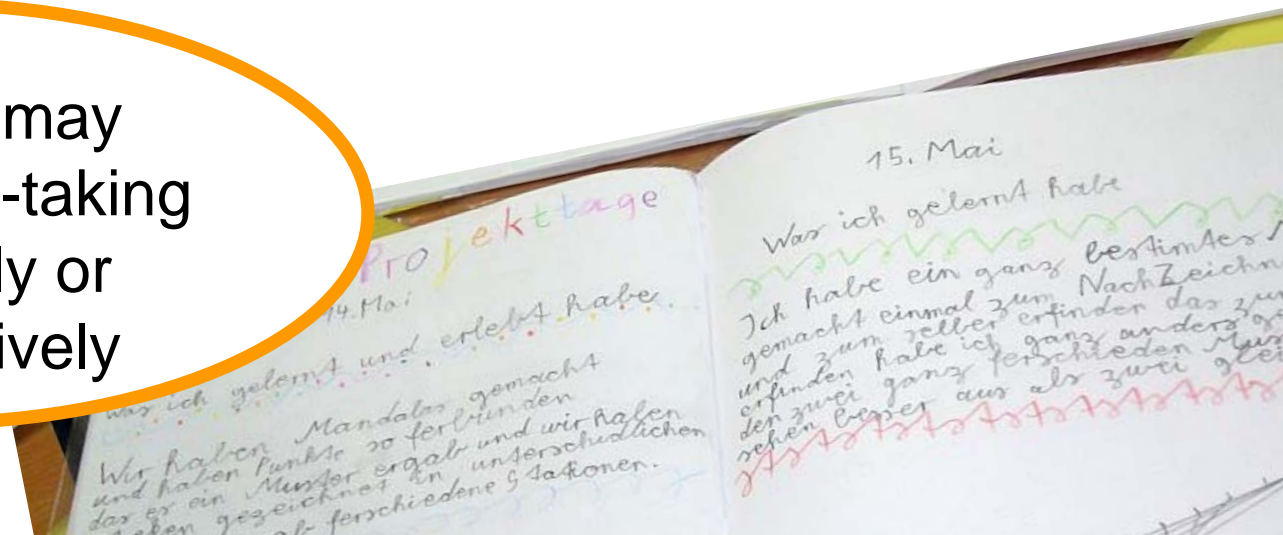 may
-taking
ly or
ively
Projekttage
14. Mai
Was ich gelernt und erlebt habe
Wir haben Mandalas gemacht
und haben Punkte so ferbunden
das es ein Muster ergab und wir haben
gezeichnet in unterschidlichen
ab ferschiedene Stationen.
15. Mai
Was ich gelernt habe
Ich habe ein ganz bestimtes
gemacht einmal zum NachZeichn
und zum selber erfinden das zum
erfinden habe ich ganz anders
den zwei ganz ferschieden Mus
sehen besser aus als zwei glei